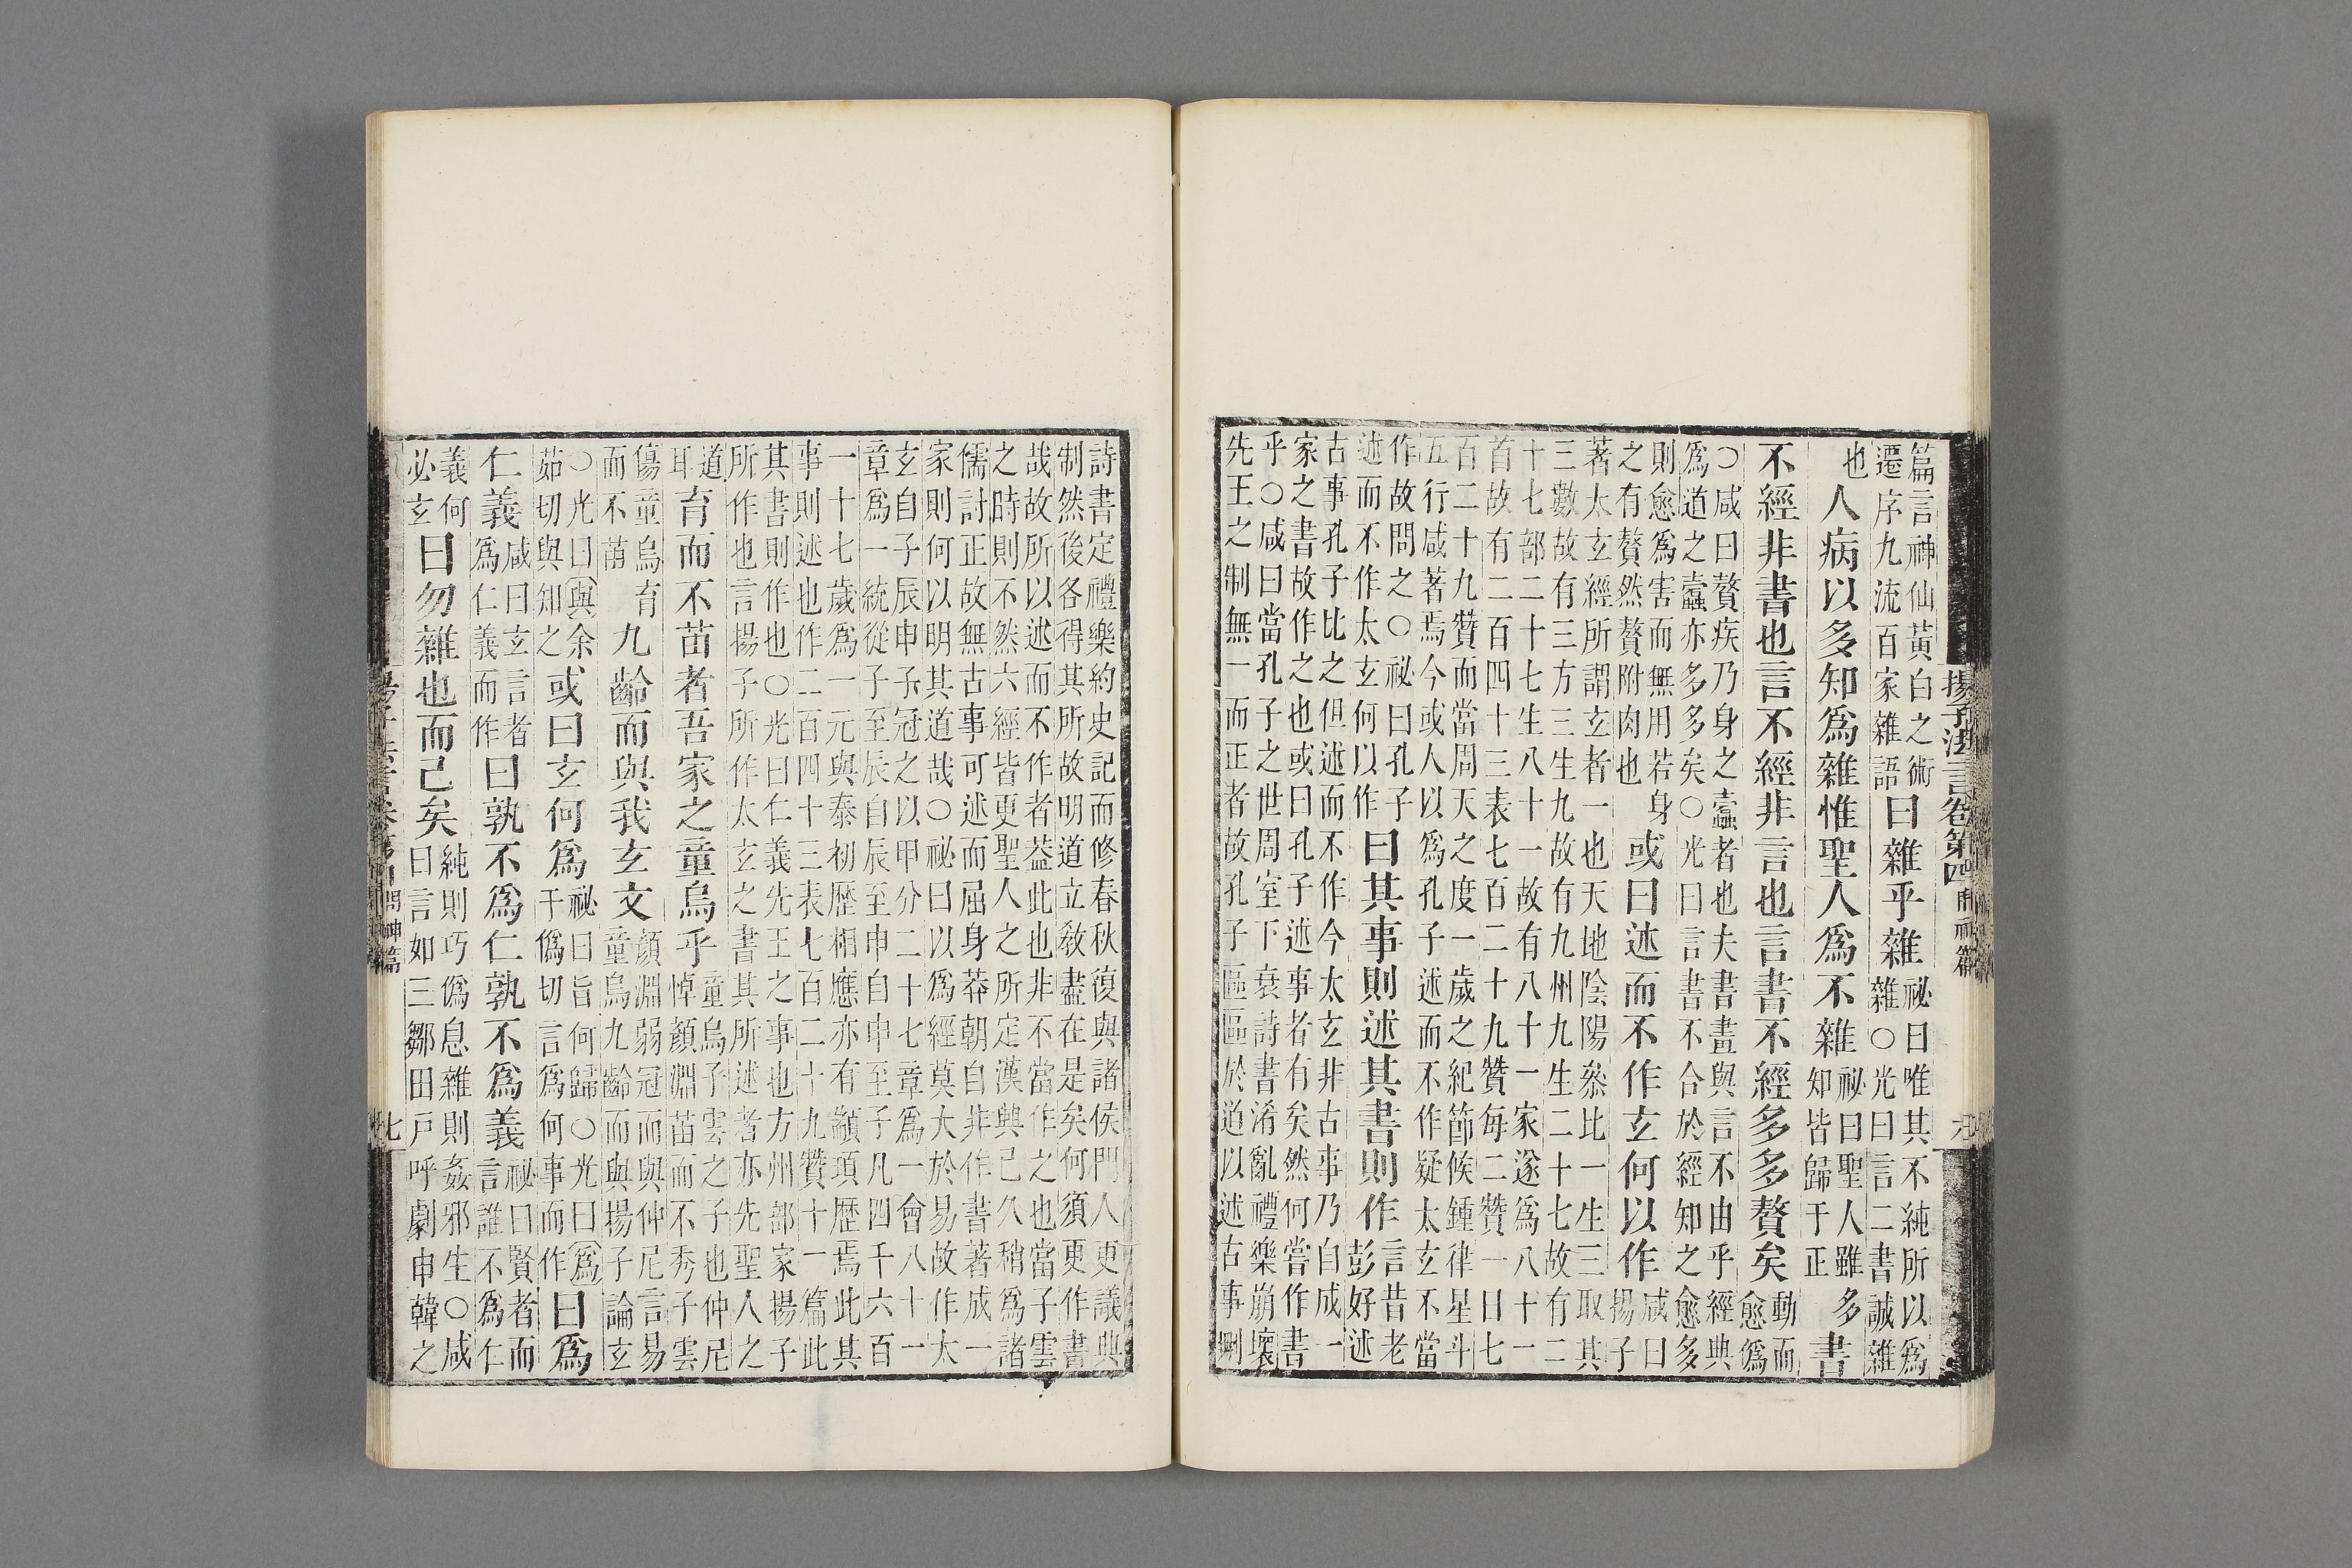 揚子法言卷第四 問神篇
篇言神仙黃白之術
遷序九流百家雜語
曰雜乎雜
祕曰唯其不純所以爲
雜○光曰言二書誠雜
也
人病以多知爲雜惟聖人爲不雜
祕曰聖人雖多
知皆歸于正
書
不經非書也言不經非言也言書不經多多贅矣
動而
愈僞
○咸曰贅疾乃身之蠹者也夫書畫與言不由乎經典
爲道之蠹亦多多矣○光曰言書不合於經知之愈多
則愈爲害而無用若身
之有贅然贅附肉也
或曰述而不作玄何以作
咸曰
揚子
著太玄經所謂玄者一也天地陰陽叅比一生三取其
三數故有三方三生九故有九州九生二十七故有二
十七部二十七生八十一故有八十一家遂爲八十一
首故有二百四十三表七百二十九贊每二贊一日七
百二十九贊而當周天之度一歲之紀節候鍾律星斗
五行咸著焉今或人以爲孔子述而不作疑太玄不當
作故問之○祕曰孔子
述而不作太玄何以作
曰其事則述其書則作
言昔老
彭好述
古事孔子比之但述而不作今太玄非古事乃自成一
家之書故作之也或曰孔子述事者有矣然何嘗作書
乎○咸曰當孔子之世周室下衰詩書淆亂禮樂崩壞
先王之制無一而正者故孔子區區於道以述古事刪
詩書定禮樂約史記而修春秋復與諸侯門人更議典
制然後各得其所故明道立敎盡在是矣何須更作書
哉故所以述而不作者葢此也非不當作之也當子雲
之時則不然六經皆更聖人之所定漢興已久稍爲諸
儒討正故無古事可述而屈身莽朝自非作書著成一
家則何以明其道哉○祕曰以爲經莫大於易故作太
玄自子辰申子冠之以甲分二十七章爲一會八十一
章爲一統從子至辰自辰至申自申至子凡四千六百
一十七歲爲一元與泰初歷相應亦有顓項歷焉此其
事則述也作二百四十三表七百二十九贊十一篇此
其書則作也○光曰仁義先王之事也方州部家揚子
所作也言揚子所作太玄之書其所述者亦先聖人之
道
耳
育而不苗者吾家之童烏乎
童烏子雲之子也仲尼
悼顏淵苗而不秀子雲
傷童烏育
而不苗
九齡而與我玄文
顏淵弱冠而與仲尼言易
童烏九齡而與揚子論玄
○光曰與余
茹切與知之
或曰玄何爲
祕曰旨何歸○光曰爲
于僞切言爲何事而作
曰爲
仁義
咸曰玄言者
爲仁義而作
曰孰不爲仁孰不爲義
祕曰賢者而
言誰不爲仁
義何
必玄
曰勿雜也而已矣
純則巧僞息雜則姦邪生○咸
曰言如三鄒田戶呼劇申韓之
七